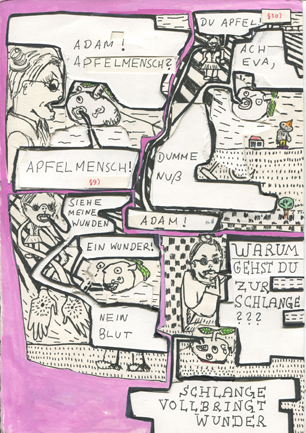 ADAM!
APFELMENSCH?
APFELMENSCH!
§9)
DU APFEL!
§10)
ACH
EVA,
DUMME
NUß
ADAM!
SIEHE
MEINE
WUNDEN
EIN WUNDER!
NEIN
BLUT
WARUM
GEHST DU
ZUR
SCHLANGE
???
SCHLANGE
VOLLBRINGT
WUNDER